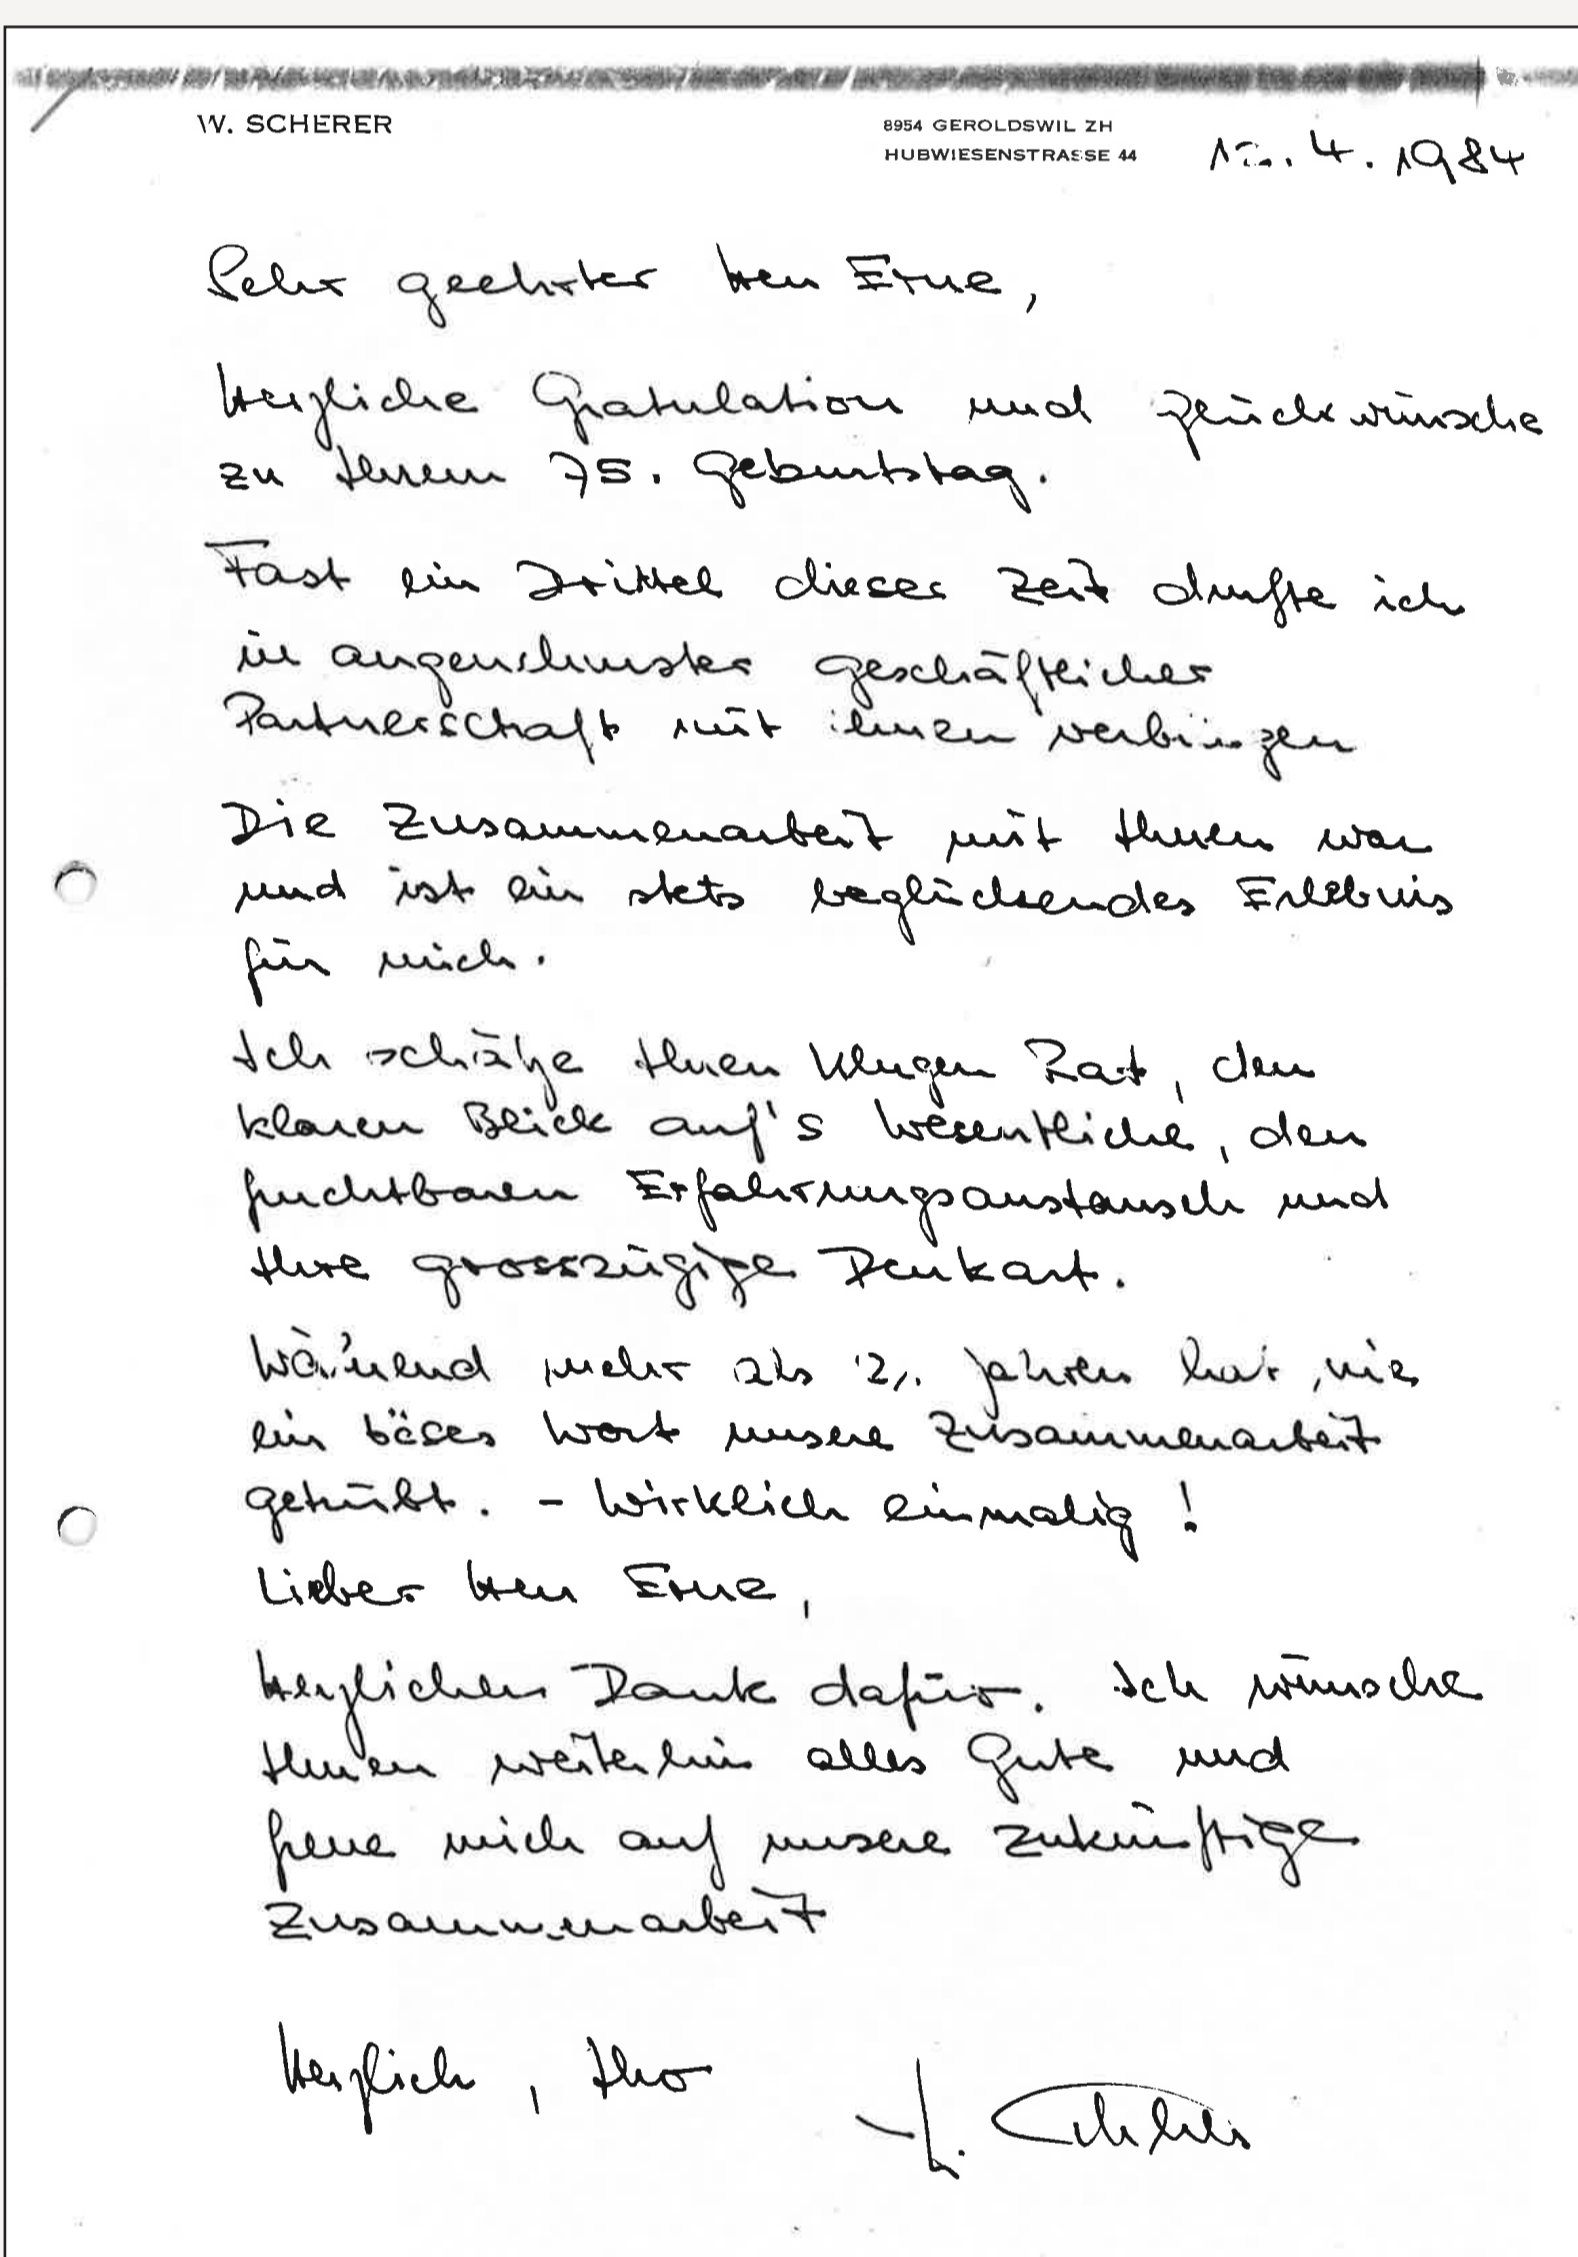 W. SCHERER
8954 GEROLDSWIL ZH
HUBWIESENSTRASSE 44
.4.1984
Sehr geehrter Herr Erne,
Herzliche Gratulation und Glückwünsche
zu Ihrem 75. Geburtstag.
Fast ein Drittel dieser Zeit durfte ich
in angenehmster geschäftlicher
Partnerschaft mit ihnen verbringen
Die Zusammenarbeit mit Ihnen war
und ist ein stets beglückendes Erlebnis
für mich.
Ich schätze Ihren klugen Rat, den
klaren Blick auf's Wesentliche, den
fruchtbaren Erfahrungsaustausch und
Ihre grosszügige Denkart.
Während mehr als Jahren hat nie
ein böses Wort unsere Zusammenarbeit
getrübt. - Wirklich einmalig!
Lieber Herr Erne,
Herzlichen Dank dafür. Ich wünsche
Ihnen weiterhin alles Gute und
freue mich auf unsere zukünftige
Zusammenarbeit
Herzlich, Ihr